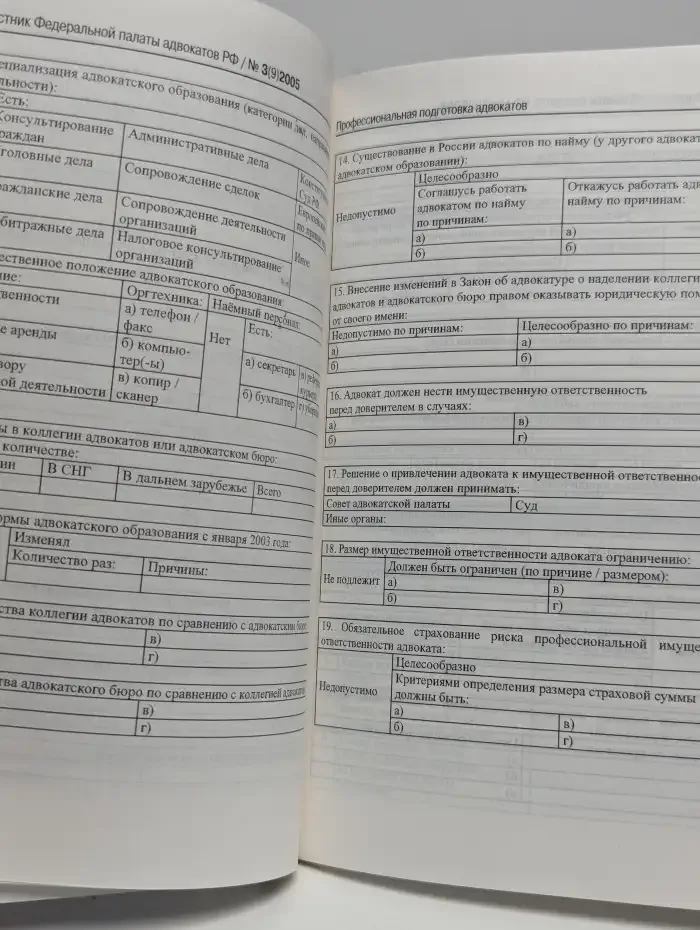 стник Федеральной палаты адвокатов РФ / № 3(9)2005
ециализация адвокатского образования (категории дел,
льности):
Есть:
Консультирование
раждан
Административные дела
головные дела
Сопровождение сделок
ажданские дела
Сопровождение деятельности
организаций
битражные дела
Налоговое консультирование
организаций
Суд РФ
Иное
ественное положение адвокатского образования:
ние:
Оргтехника:
Наёмный персонал:
твенности
а) телефон /
факс
Нет
Есть:
е аренды
б) компью-
тер(-ы)
а) секретарь
вору
ой деятельности
в) копир /
сканер
б) бухгалтер
ы в коллегии адвокатов или адвокатском бюро:
количестве:
ии
В СНГ
В дальнем зарубежье
Всего
ормы адвокатского образования с января 2003 года:
Изменял
Количество раз:
Причины:
ства коллегии адвокатов по сравнению с адвокатским бюро
в)
г)
ва адвокатского бюро по сравнению с коллегией адвокатов
в)
г)
Профессиональная подготовка адвокатов
14. Существование в России адвокатов по найму (у другого адвокат
адвокатском образовании):
Недопустимо
Целесообразно
Соглашусь работать
адвокатом по найму
по причинам:
Откажусь работать адв
найму по причинам:
а)
а)
б)
б)
15. Внесение изменений в Закон об адвокатуре о наделении коллеги
адвокатов и адвокатского бюро правом оказывать юридическую пом
от своего имени:
Недопустимо по причинам:
Целесообразно по причинам:
а)
а)
б)
б)
16. Адвокат должен нести имущественную ответственность
перед доверителем в случаях:
а)
в)
б)
г)
17. Решение о привлечении адвоката к имущественной ответственнос
перед доверителем должен принимать:
Совет адвокатской палаты
Суд
Иные органы:
18. Размер имущественной ответственности адвоката ограничению:
Не подлежит
Должен быть ограничен (по причине / размером):
а)
в)
б)
г)
19. Обязательное страхование риска профессиональной имуще
ответственности адвоката:
Недопустимо
Целесообразно
Критериями определения размера страховой суммы
должны быть:
а)
в)
б)
г)